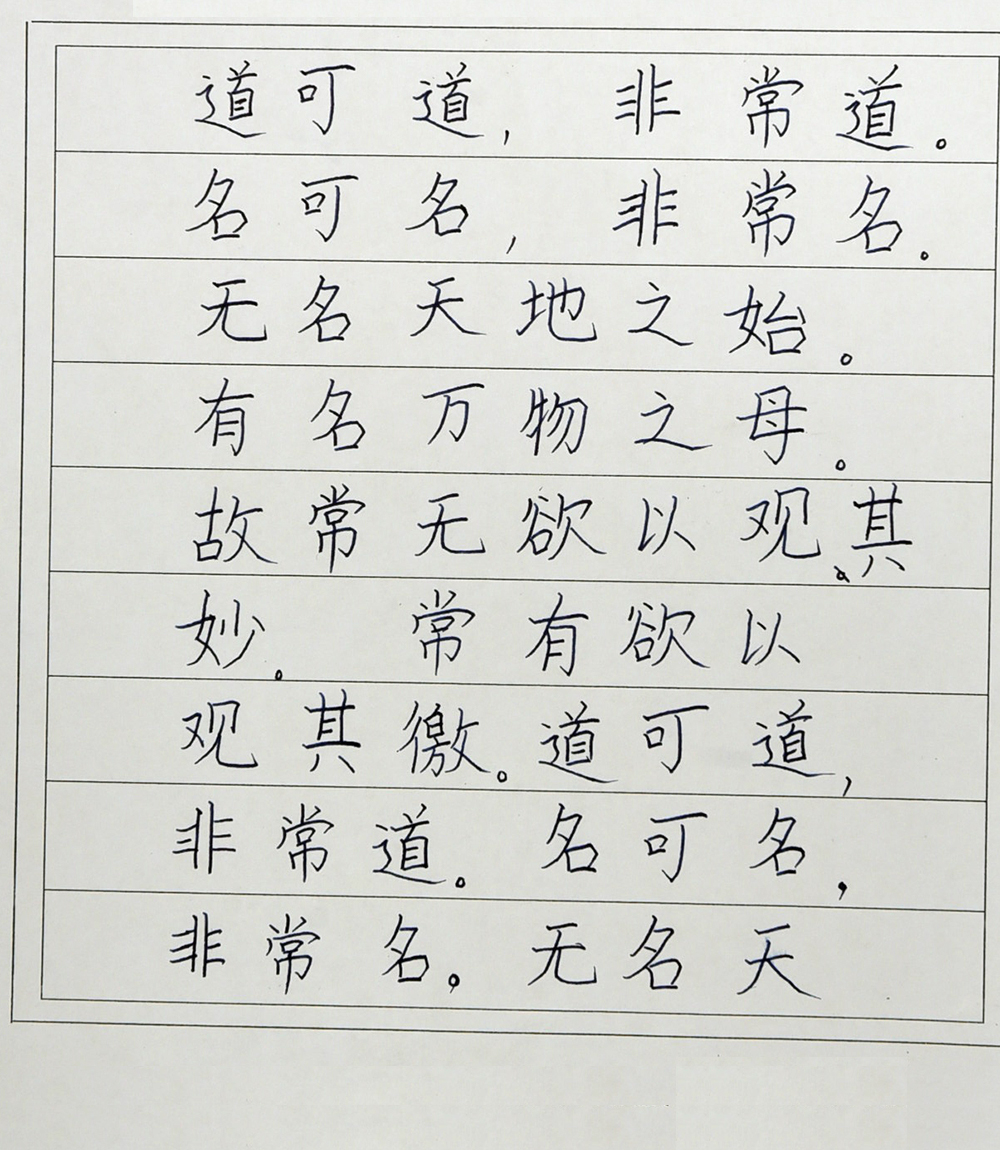 道可道，非常道。
名可名，非常名。
无名天地之始。
有名万物之母。
故常无欲以观、其
妙。常有欲以
观其徼。道可道，
非常道。名可名，
非常名。无名天